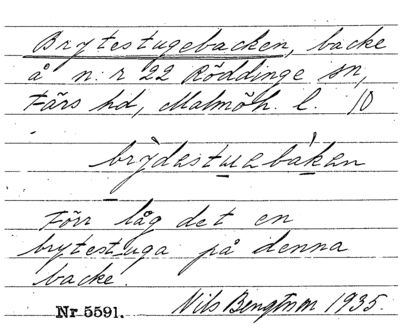 Brytestugebacken, backe
å n:r 22 Röddinge sn,
Färs hd, Malmöh. l. 10
brỳdestuebàken
Förr låg det en
brytestuga på denna
backe.
Nr 5591. Nils Bengtsson 1935.